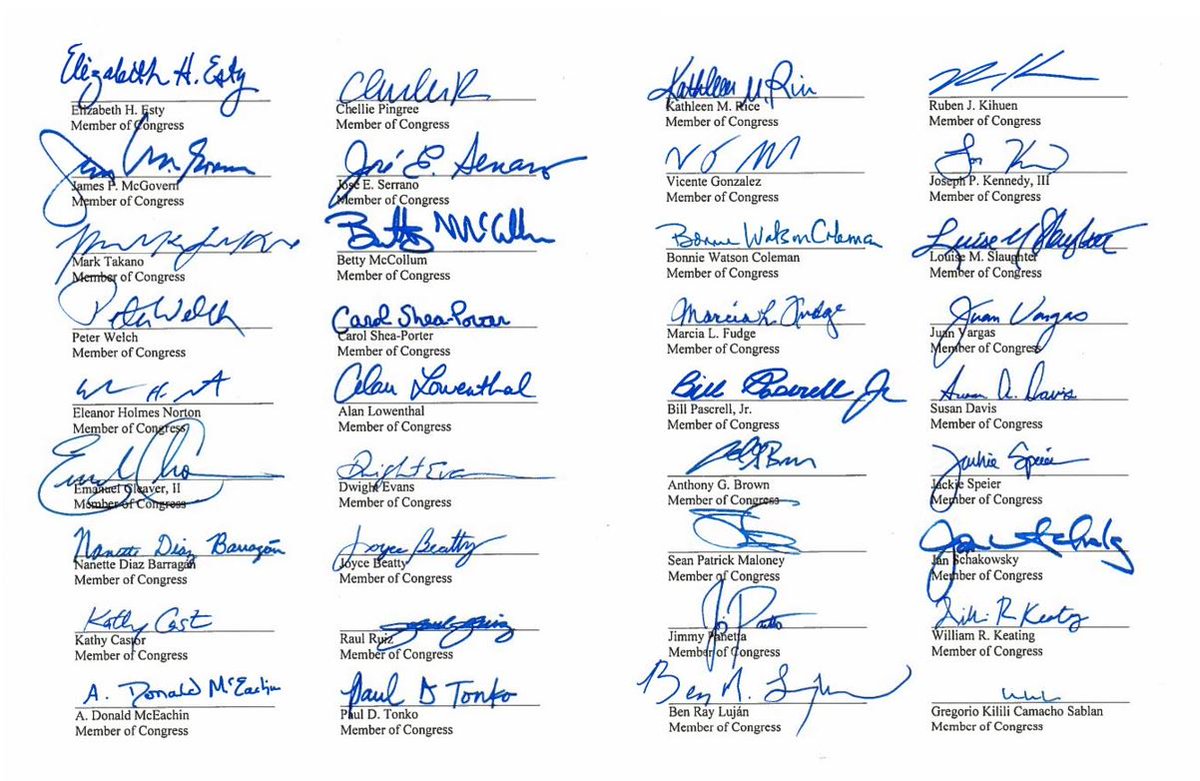 Elizabeth H. Esty
Elizabeth H. Esty
Member of Congress
James P. McGovern
Member of Congress
Mark Takano
Member of Congress
Peter Welch
Peter Welch
Member of Congress
Eleanor Holmes Norton
Member of Congress
Emanuel Cleaver, II
Member of Congress
Nanette Diaz Barragán
Nanette Diaz Barragán
Member of Congress
Kathy Cast
Kathy Castor
Member of Congress
A. Donald McEachin
A. Donald McEachin
Member of Congress
Chellie Pingree
Member of Congress
José E. Serrano
José E. Serrano
Member of Congress
Betty McCollum
Betty McCollum
Member of Congress
Carol Shea-Porter
Carol Shea-Porter
Member of Congress
Alan Lowenthal
Alan Lowenthal
Member of Congress
Dwight Evans
Dwight Evans
Member of Congress
Joyce Beatty
Joyce Beatty
Member of Congress
Raul Ruiz
Raul Ruiz
Member of Congress
Paul D Tonko
Paul D. Tonko
Member of Congress
Kathleen M Rice
Kathleen M. Rice
Member of Congress
Vicente Gonzalez
Member of Congress
Bonnie Watson Coleman
Bonnie Watson Coleman
Member of Congress
Marcia L. Fudge
Marcia L. Fudge
Member of Congress
Bill Pascrell Jr
Bill Pascrell, Jr.
Member of Congress
Anthony G. Brown
Member of Congress
Sean Patrick Maloney
Member of Congress
Jimmy Panetta
Member of Congress
Ben R. Luján
Ben Ray Luján
Member of Congress
Ruben J. Kihuen
Member of Congress
Joseph P. Kennedy, III
Member of Congress
Louise M Slaughter
Louise M. Slaughter
Member of Congress
Juan Vargas
Juan Vargas
Member of Congress
Susan A. Davis
Susan Davis
Member of Congress
Jackie Speier
Jackie Speier
Member of Congress
Jan Schakowsky
Member of Congress
William R Keating
William R. Keating
Member of Congress
Gregorio Kilili Camacho Sablan
Member of Congress